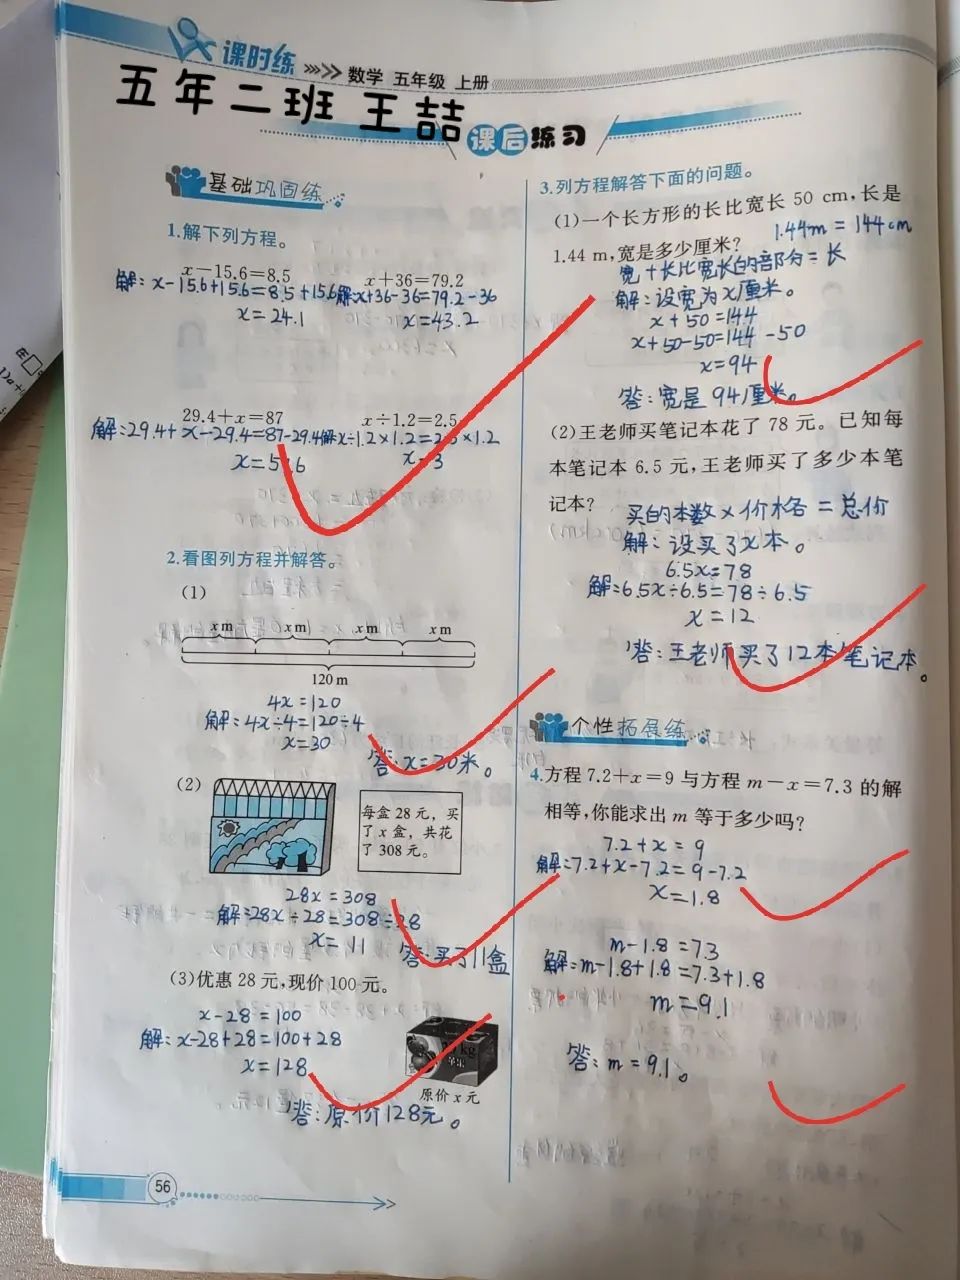 课时练 数学 五年级 上册
五年二班 王喆
课后练习
基础巩固练
1.解下列方程。
x－15.6＝8.5 x＋36＝79.2
解: x－15.6＋15.6＝8.5＋15.6 解:x＋36－36＝79.2－36
x＝24.1 x＝43.2
29.4＋x＝87 x÷1.2＝2.5
解:29.4＋x－29.4＝87－29.4 解x÷1.2×1.2＝2.5×1.2
x＝5 .6 x＝3
2.看图列方程并解答。
(1)
x m x m x m x m
120 m
4x＝120
解:4x÷4＝120÷4
x＝30
答:x＝30米。
(2)
每盒28元，买
了x盒，共花
了308元。
28x＝308
解:28x÷28＝308÷28
x＝11
答:买了11盒
(3)优惠28元，现价100元。
x－28＝100
解:x－28＋28＝100＋28
x＝128
kg
苹果
原价x元
答:原价128元。
56
3.列方程解答下面的问题。
(1)一个长方形的长比宽长50 cm,长是
1.44m＝144cm
1.44 m,宽是多少厘米?
宽＋长比宽长的部分＝长
解:设宽为x厘米。
x＋50＝144
x＋50－50＝144－50
x＝94
答:宽是94厘米。
(2)王老师买笔记本花了78元。已知每
本笔记本6.5元,王老师买了多少本笔
记本?
买的本数×价格＝总价
解:设买了x本。
6.5x＝78
解:6.5x÷6.5＝78÷6.5
x＝12
答:王老师买了12本笔记本。
个性拓展练
4.方程7.2＋x＝9与方程m－x＝7.3的解
相等,你能求出m等于多少吗?
7.2＋x＝9
解:7.2＋x－7.2＝9－7.2
x＝1.8
m－1.8＝7.3
解:m－1.8＋1.8＝7.3＋1.8
m＝9.1
答:m＝9.1。